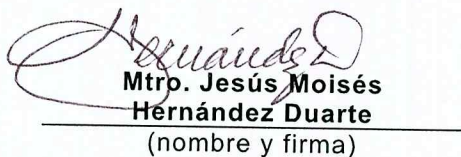 Hernández D
Mtro. Jesús Moisés
Hernández Duarte
(nombre y firma)